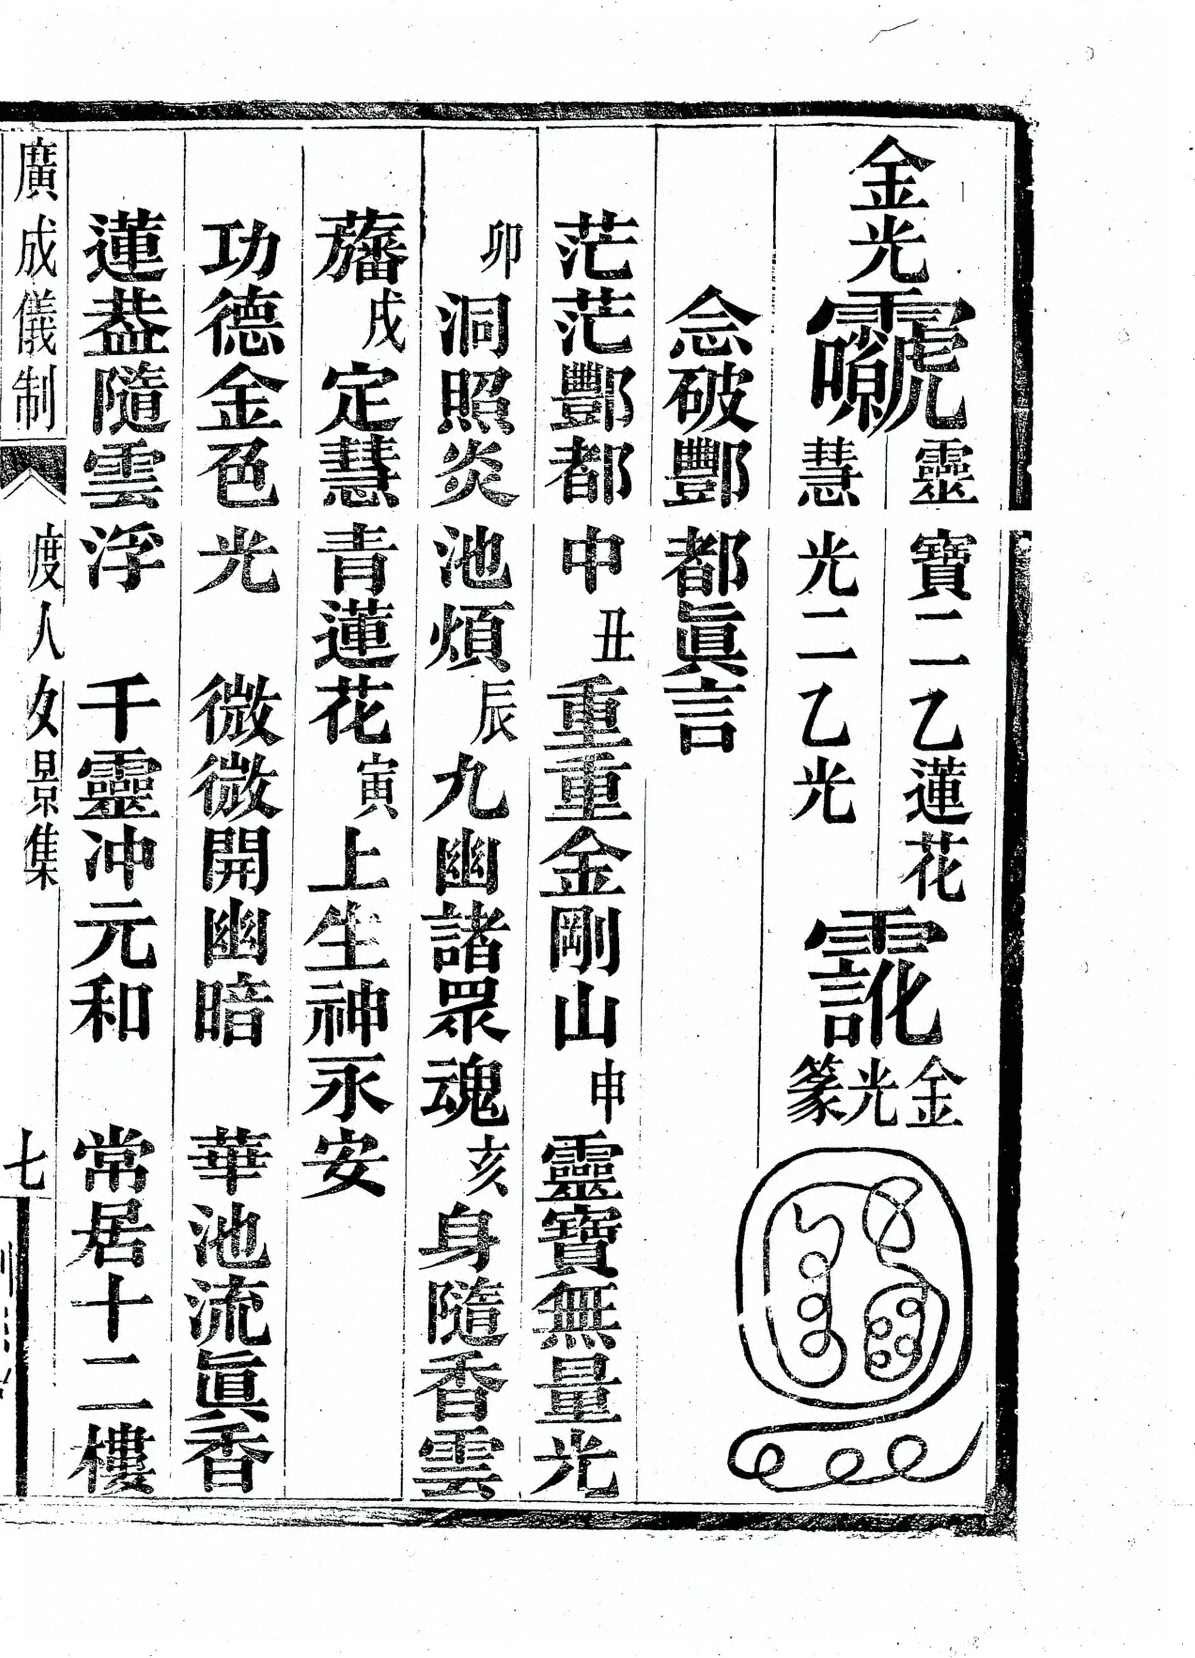 金光
靈寶二乙蓮花
慧光二乙光
金光篆
念破酆都眞言
茫茫酆都中丑重重金剛山申靈寶無量光
卯洞照炎池煩辰九幽諸眾魂亥身隨香雲
旛戌定慧青蓮花寅上生神永安
功德金色光 微微開幽暗 華池流眞香
蓮葢隨雲浮 千靈沖元和 常居十二樓
廣成儀制 度人 景集 七